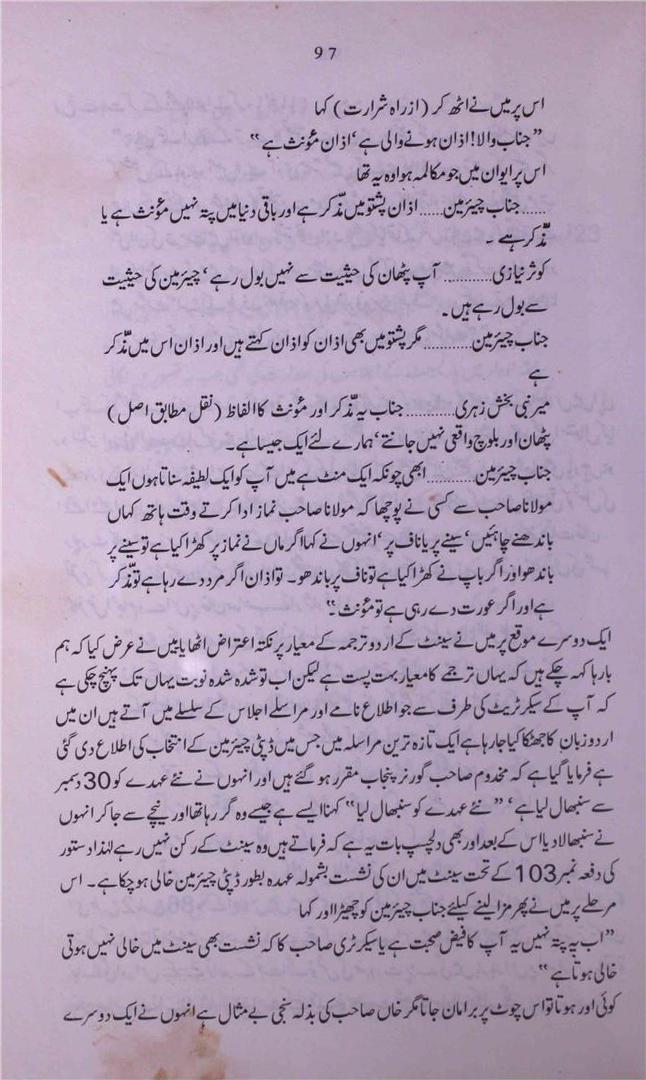 97
اس پر میں نے اٹھ کر (از راہ شرارت) کہا
”جناب والا! اذان ہونے والی ہے‘ اذان مؤنث ہے“
اس پر ایوان میں جو مکالمہ ہوا وہ یہ تھا
..... جناب چیئرمین ...... اذان پشتو میں مذّکر ہے اور باقی دنیا میں پتہ نہیں مؤنث ہے یا
مذّکر ہے ۔
کوثر نیازی ............ آپ پٹھان کی حیثیت سے نہیں بول رہے‘ چیئرمین کی حیثیت
سے بول رہے ہیں ۔
جناب چیئرمین ........... مگر پشتو میں بھی اذان کو اذان کہتے ہیں اور اذان اس میں مذّکر
ہے
میر نبی بخش زہری ............ جناب یہ مذّکر اور مؤنث کا الفاظ (نقل مطابق اصل)
پٹھان اور بلوچ واقعی نہیں جانتے‘ ہمارے لئے ایک جیسا ہے ۔
جناب چیئرمین ........... ابھی چونکہ ایک منٹ ہے میں آپ کو ایک لطیفہ سناتا ہوں ایک
مولانا صاحب سے کسی نے پوچھا کہ مولانا صاحب نماز ادا کرتے وقت ہاتھ کہاں
باندھنے چاہئیں‘ سینے پر یا ناف پر‘ انہوں نے کہا اگر ماں نے نماز پر کھڑا کیا ہے تو سینے پر
باندھو اور اگر باپ نے کھڑا کیا ہے تو ناف پر باندھو ۔ تو اذان اگر مرد دے رہا ہے تو مذّکر
ہے اور اگر عورت دے رہی ہے تو مؤنث ۔“
ایک دوسرے موقع پر میں نے سینٹ کے اردو ترجمہ کے معیار پر نکتہ اعتراض اٹھایا میں نے عرض کیا کہ ہم
بارہا کہہ چکے ہیں کہ یہاں ترجمے کا معیار بہت پست ہے لیکن اب تو شدہ شدہ نوبت یہاں تک پہنچ چکی ہے
کہ آپ کے سیکرٹریٹ کی طرف سے جو اطلاع نامے اور مراسلے اجلاس کے سلسلے میں آتے ہیں ان میں
اردو زبان کا جھٹکا کیا جا رہا ہے ایک تازہ ترین مراسلہ میں جس میں ڈپٹی چیئرمین کے انتخاب کی اطلاع دی گئی
ہے فرمایا گیا ہے کہ مخدوم صاحب گورنر پنجاب مقرر ہو گئے ہیں اور انہوں نے نئے عہدے کو 30 دسمبر
سے سنبھال لیا ہے‘ ”نئے عہدے کو سنبھال لیا“ کہنا ایسے ہے جیسے وہ گر رہا تھا اور نیچے سے جا کر انہوں
نے سنبھالا دیا اس کے بعد اور بھی دلچسپ بات یہ ہے کہ فرماتے ہیں وہ سینٹ کے رکن نہیں رہے لہٰذا دستور
کی دفعہ نمبر 103 کے تحت سینٹ میں ان کی نشست بشمولہ عہدہ بطور ڈپٹی چیئرمین خالی ہو چکا ہے ۔ اس
مرحلے پر میں نے پھر مزا لینے کیلئے جناب چیئرمین کو چھیڑا اور کہا
”اب یہ پتہ نہیں یہ آپ کا فیض صحبت ہے یا سیکرٹری صاحب کا کہ نشست بھی سینٹ میں خالی نہیں ہوتی
خالی ہوتا ہے“
کوئی اور ہوتا تو اس چوٹ پر برا مان جاتا مگر خاں صاحب کی بذلہ سنجی بے مثال ہے انہوں نے ایک دوسرے